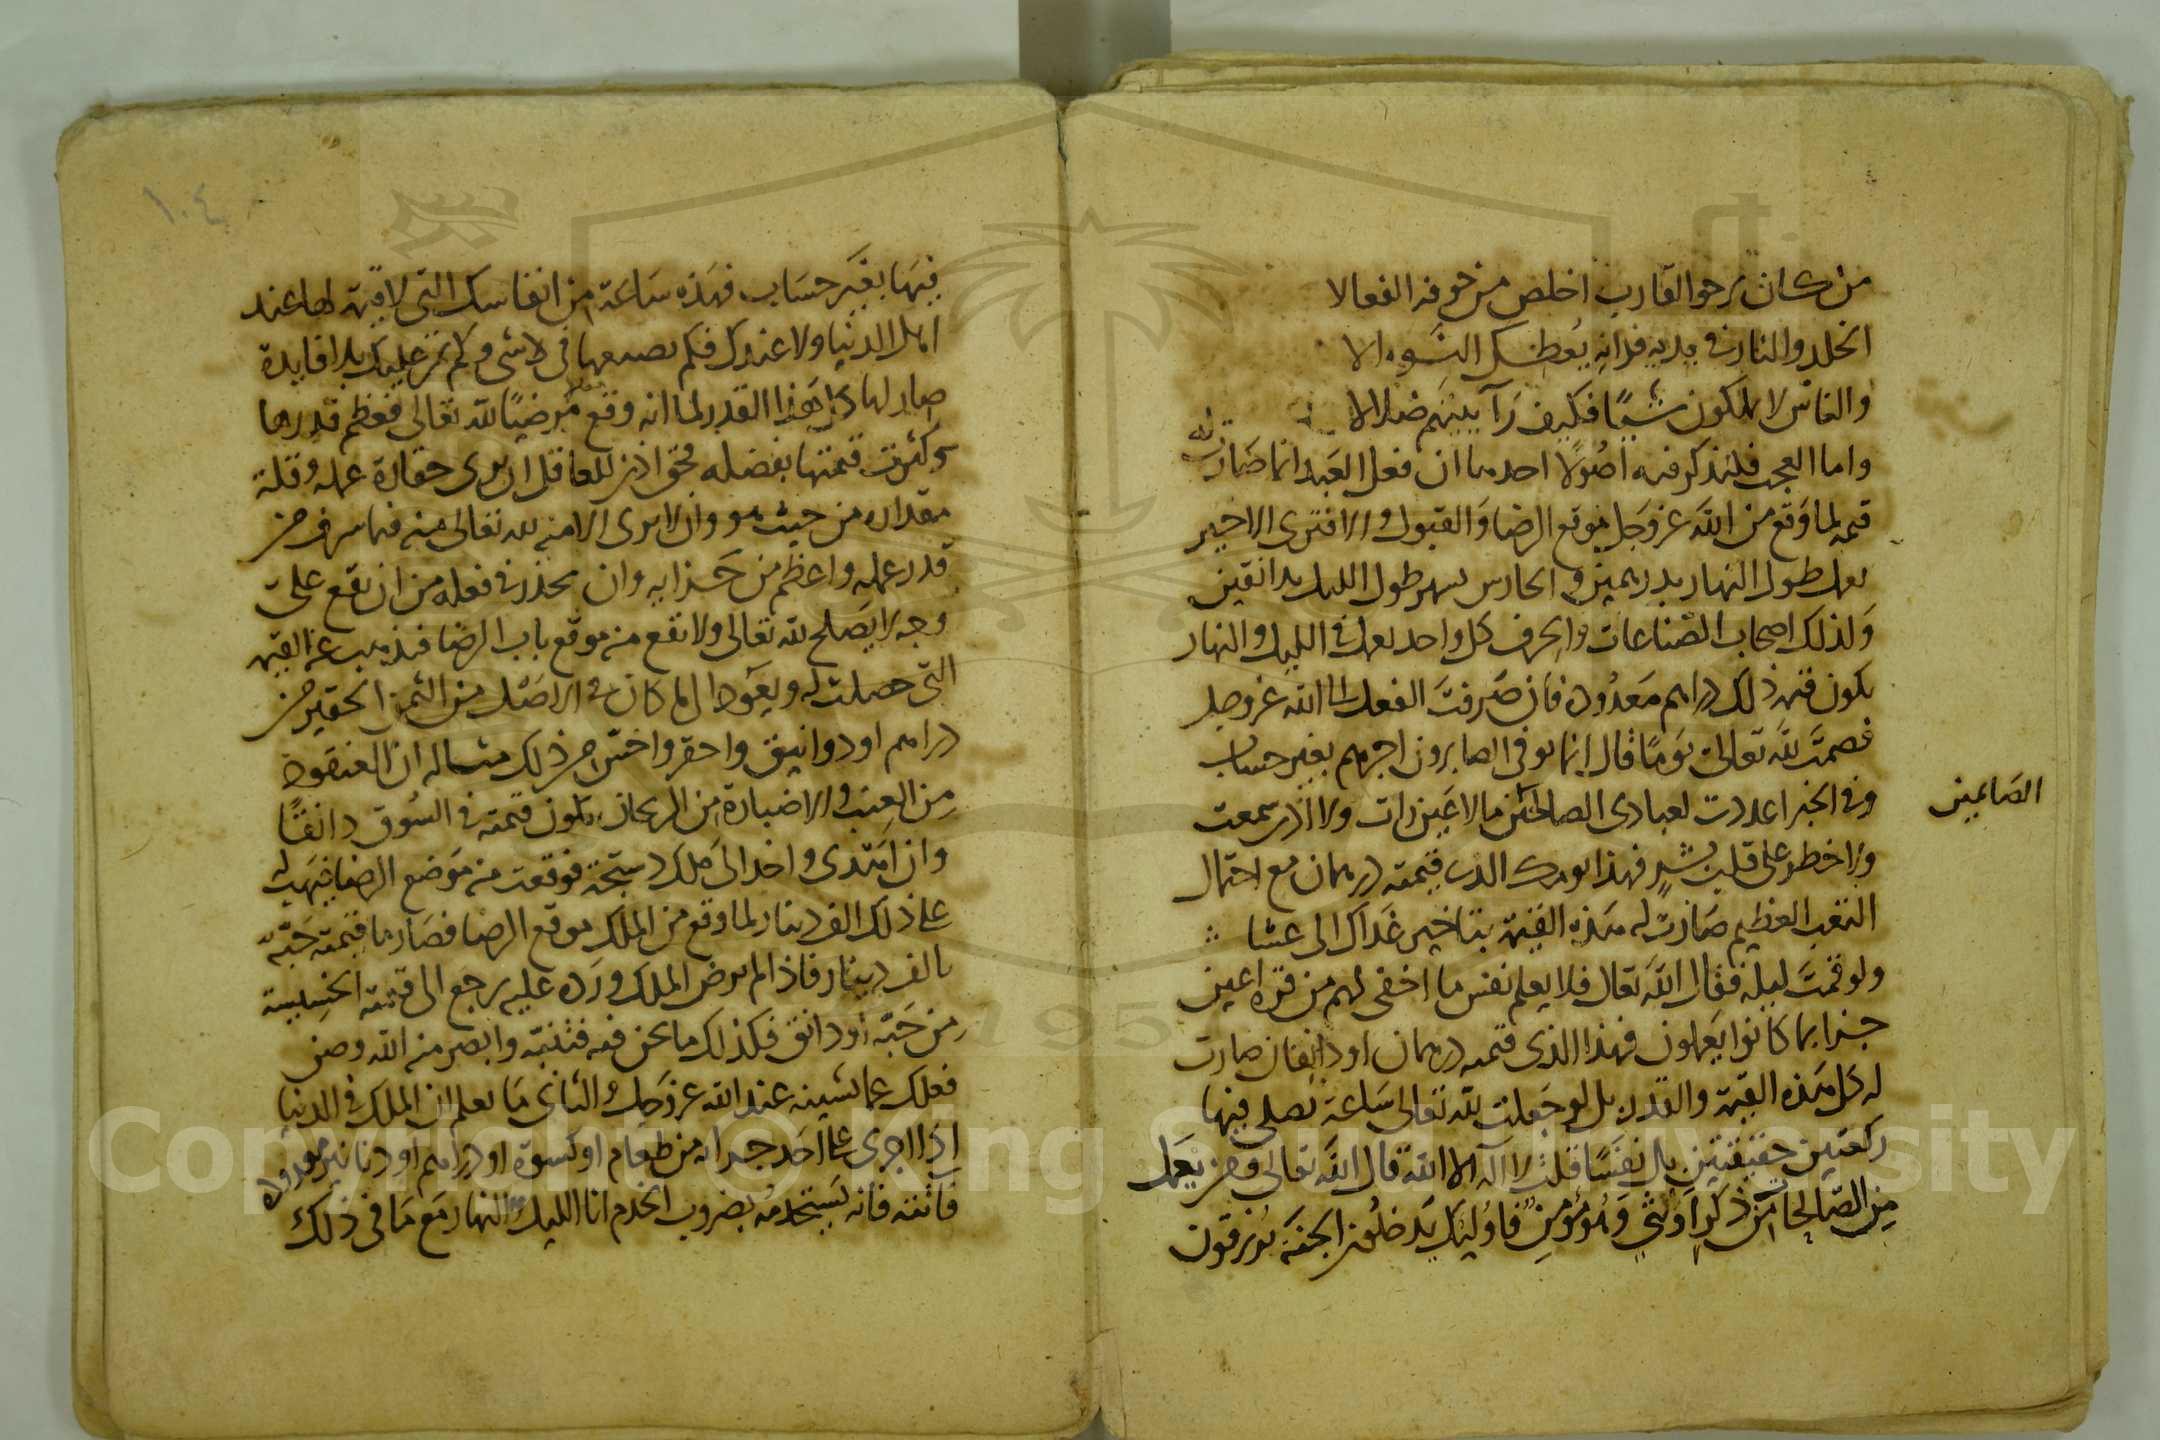 من كان يرجو القارب اخلص من خوفه الفعالا
الخلد والنار في يديه فراءه يعطك النوالا
والناس لا يملكون شيئا فكيف رآييتهم ضلالا
واما العجب فلنذكر فيه اصولا احدها ان فعل العبد انما صارت له
قيمة لما وقع من الله عز وجل موقع الرضا والقبول والا فترى الاجير
يعمل طول النهار بدرهمين والحارس يسهر طول الليل بدانقين
وكذلك اصحاب الصناعات والحرف كل واحد يعمل في الليل والنهار
يكون قيمة ذلك دراهم معدودة فان صرفت الفعل الى الله عز وجل
فصمت لله تعالى يوما قال انما يوفى الصابرون اجرهم بغير حساب
وفي الخبر اعددت لعبادي الصالحين ما لا عين رات ولا اذن سمعت
الصايمين
ولا خطر على قلب بشر فهذا يومك الذي قيمته درهمان مع احتمال
التعب العظيم صارت له هذه القيمة بتاخير غداك الى عشا
ولو قمت ليلة فقال الله تعالى فلا يعلم نفس ما اخفى لهم من قرة اعين
جزا بما كانوا يعملون فهذا الذي قيمته درهمان او دانقان صارت
له كل هذه القيمة والقدر بل لو جعلت لله تعالى ساعة تصلى فيها
ركعتين خفيفتين بل نفسا قلت لا اله الا الله قال الله تعالى ومن يعمل
من الصالحات من ذكر او انثى وهو مؤمن فاوليك يدخلون الجنة يرزقون
١٠٤
فيها بغير حساب فهذه ساعة من انفاسك التي لا قيمة لها عند
اهل الدنيا ولا عندك فكم تضيعها في لا شى وكم تمر عليك بلا فايدة
صار لها كل هذا القدر لما انه وقع مرضيا لله تعالى فعظم قدرها
وكثرت قيمتها بفضله فحق اذن للعاقل ان يرى حقارة عمله وقلة
مقداره من حيث هو وان لا يرى الا منه لله تعالى منه فيما شرف من
قدر عمله واعظم من جزايه وان يحذر في فعله من ان يقع على
وجه لا يصلح لله تعالى ولا تقع منه موقع باب الرضا فيذهب عنه القيمة
التي حصلت له ويعود الى ما كان في الاصل من الثمن الحقير من
دراهم او دوانيق واحقر واخس من ذلك مثاله ان العنقود
من العنب والاضبارة من الريحان يكون قيمته في السوق دانقا
وان اهتدى واخد الى ملك دستجة فوقعت منه موضع الرضا فيهب له
على ذلك الف دينار لما وقع من الملك موقع الرضا فصار ما قيمته حبة
بالف دينار فاذا لم يرض الملك ورده عليه يرجع الى قيمته الخسيسة
من حبة او دانق فكذلك ما نحن فيه فتنبه وابصر منه الله وصن
فعلك عما يشينه عند الله عز وجل والثاني ما يعلم ان الملك في الدنيا
اذا اجرى على احد جراه من طعام او كسوة او دراهم او دنانير معدودة
فانته فانه يستخدمه بضروب الخدم انا الليل والنهار مع ما في ذلك